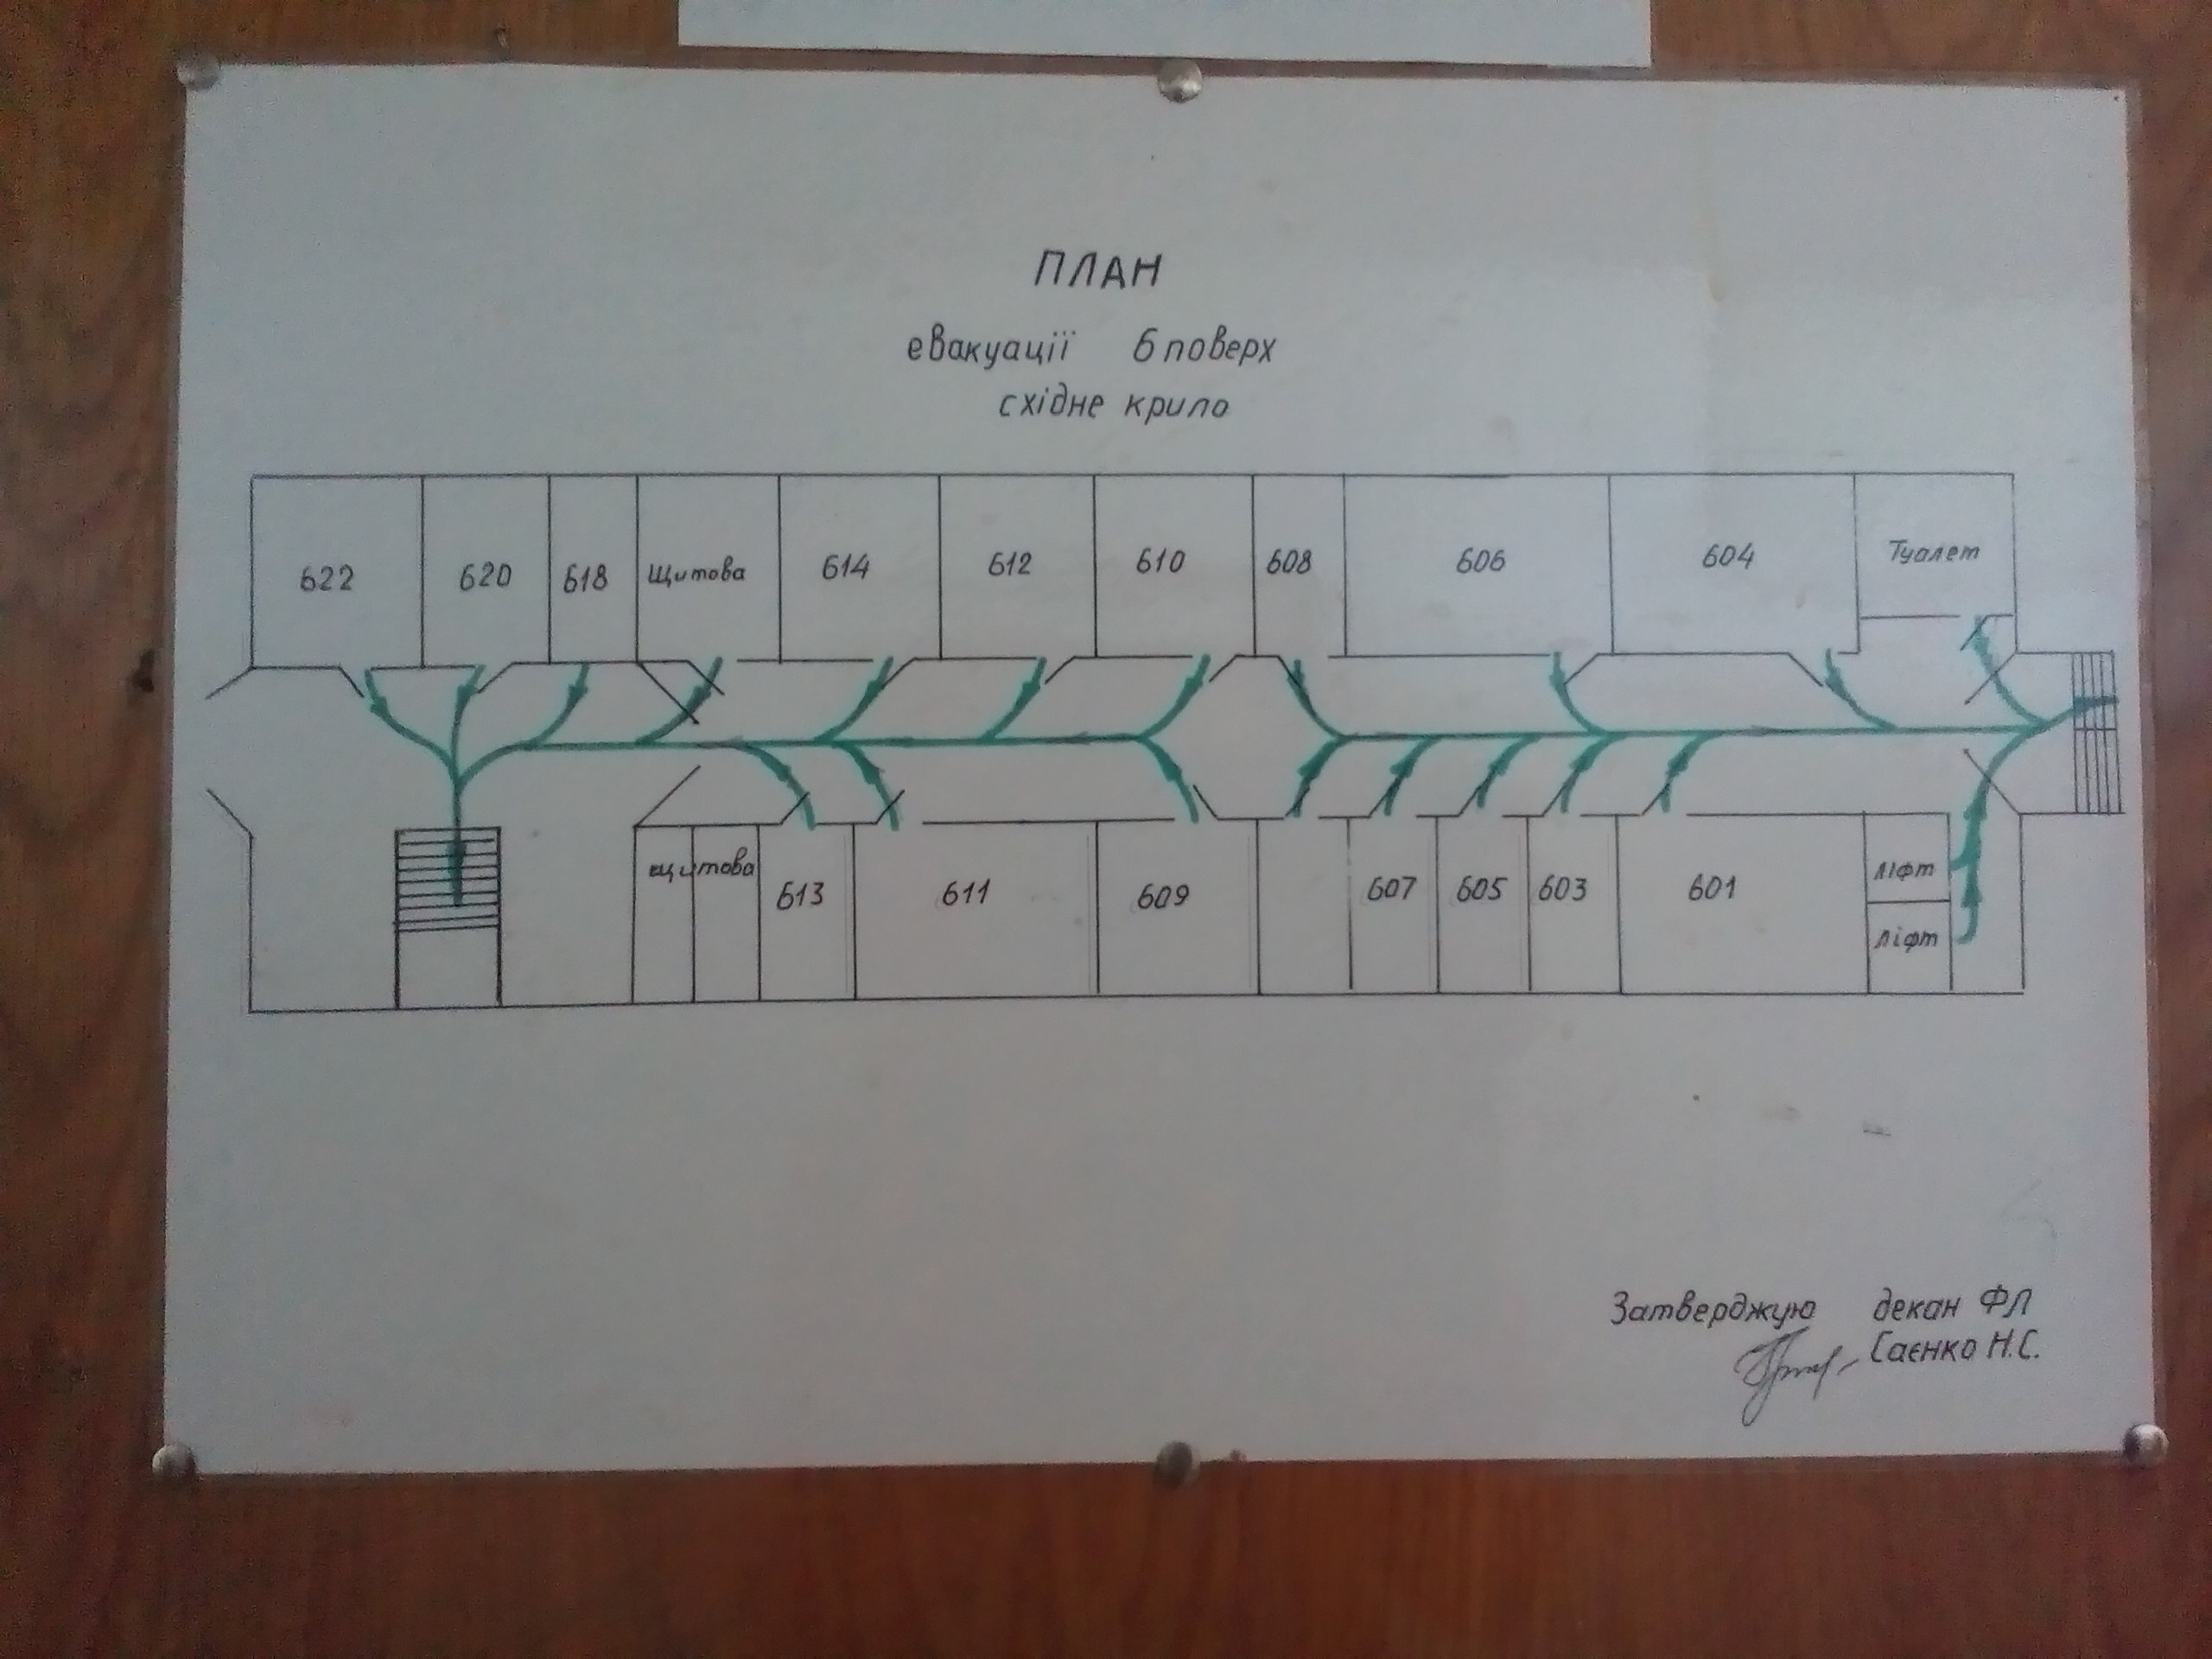 ПЛАН
евакуації 6 поверх
східне крило
622 620 618 Щитова 614 612 610 608 606 604 Туалет
щитова 613 611 609 607 605 603 601 ліфт
ліфт
Затверджую декан ФЛ
Саєнко Н.С.